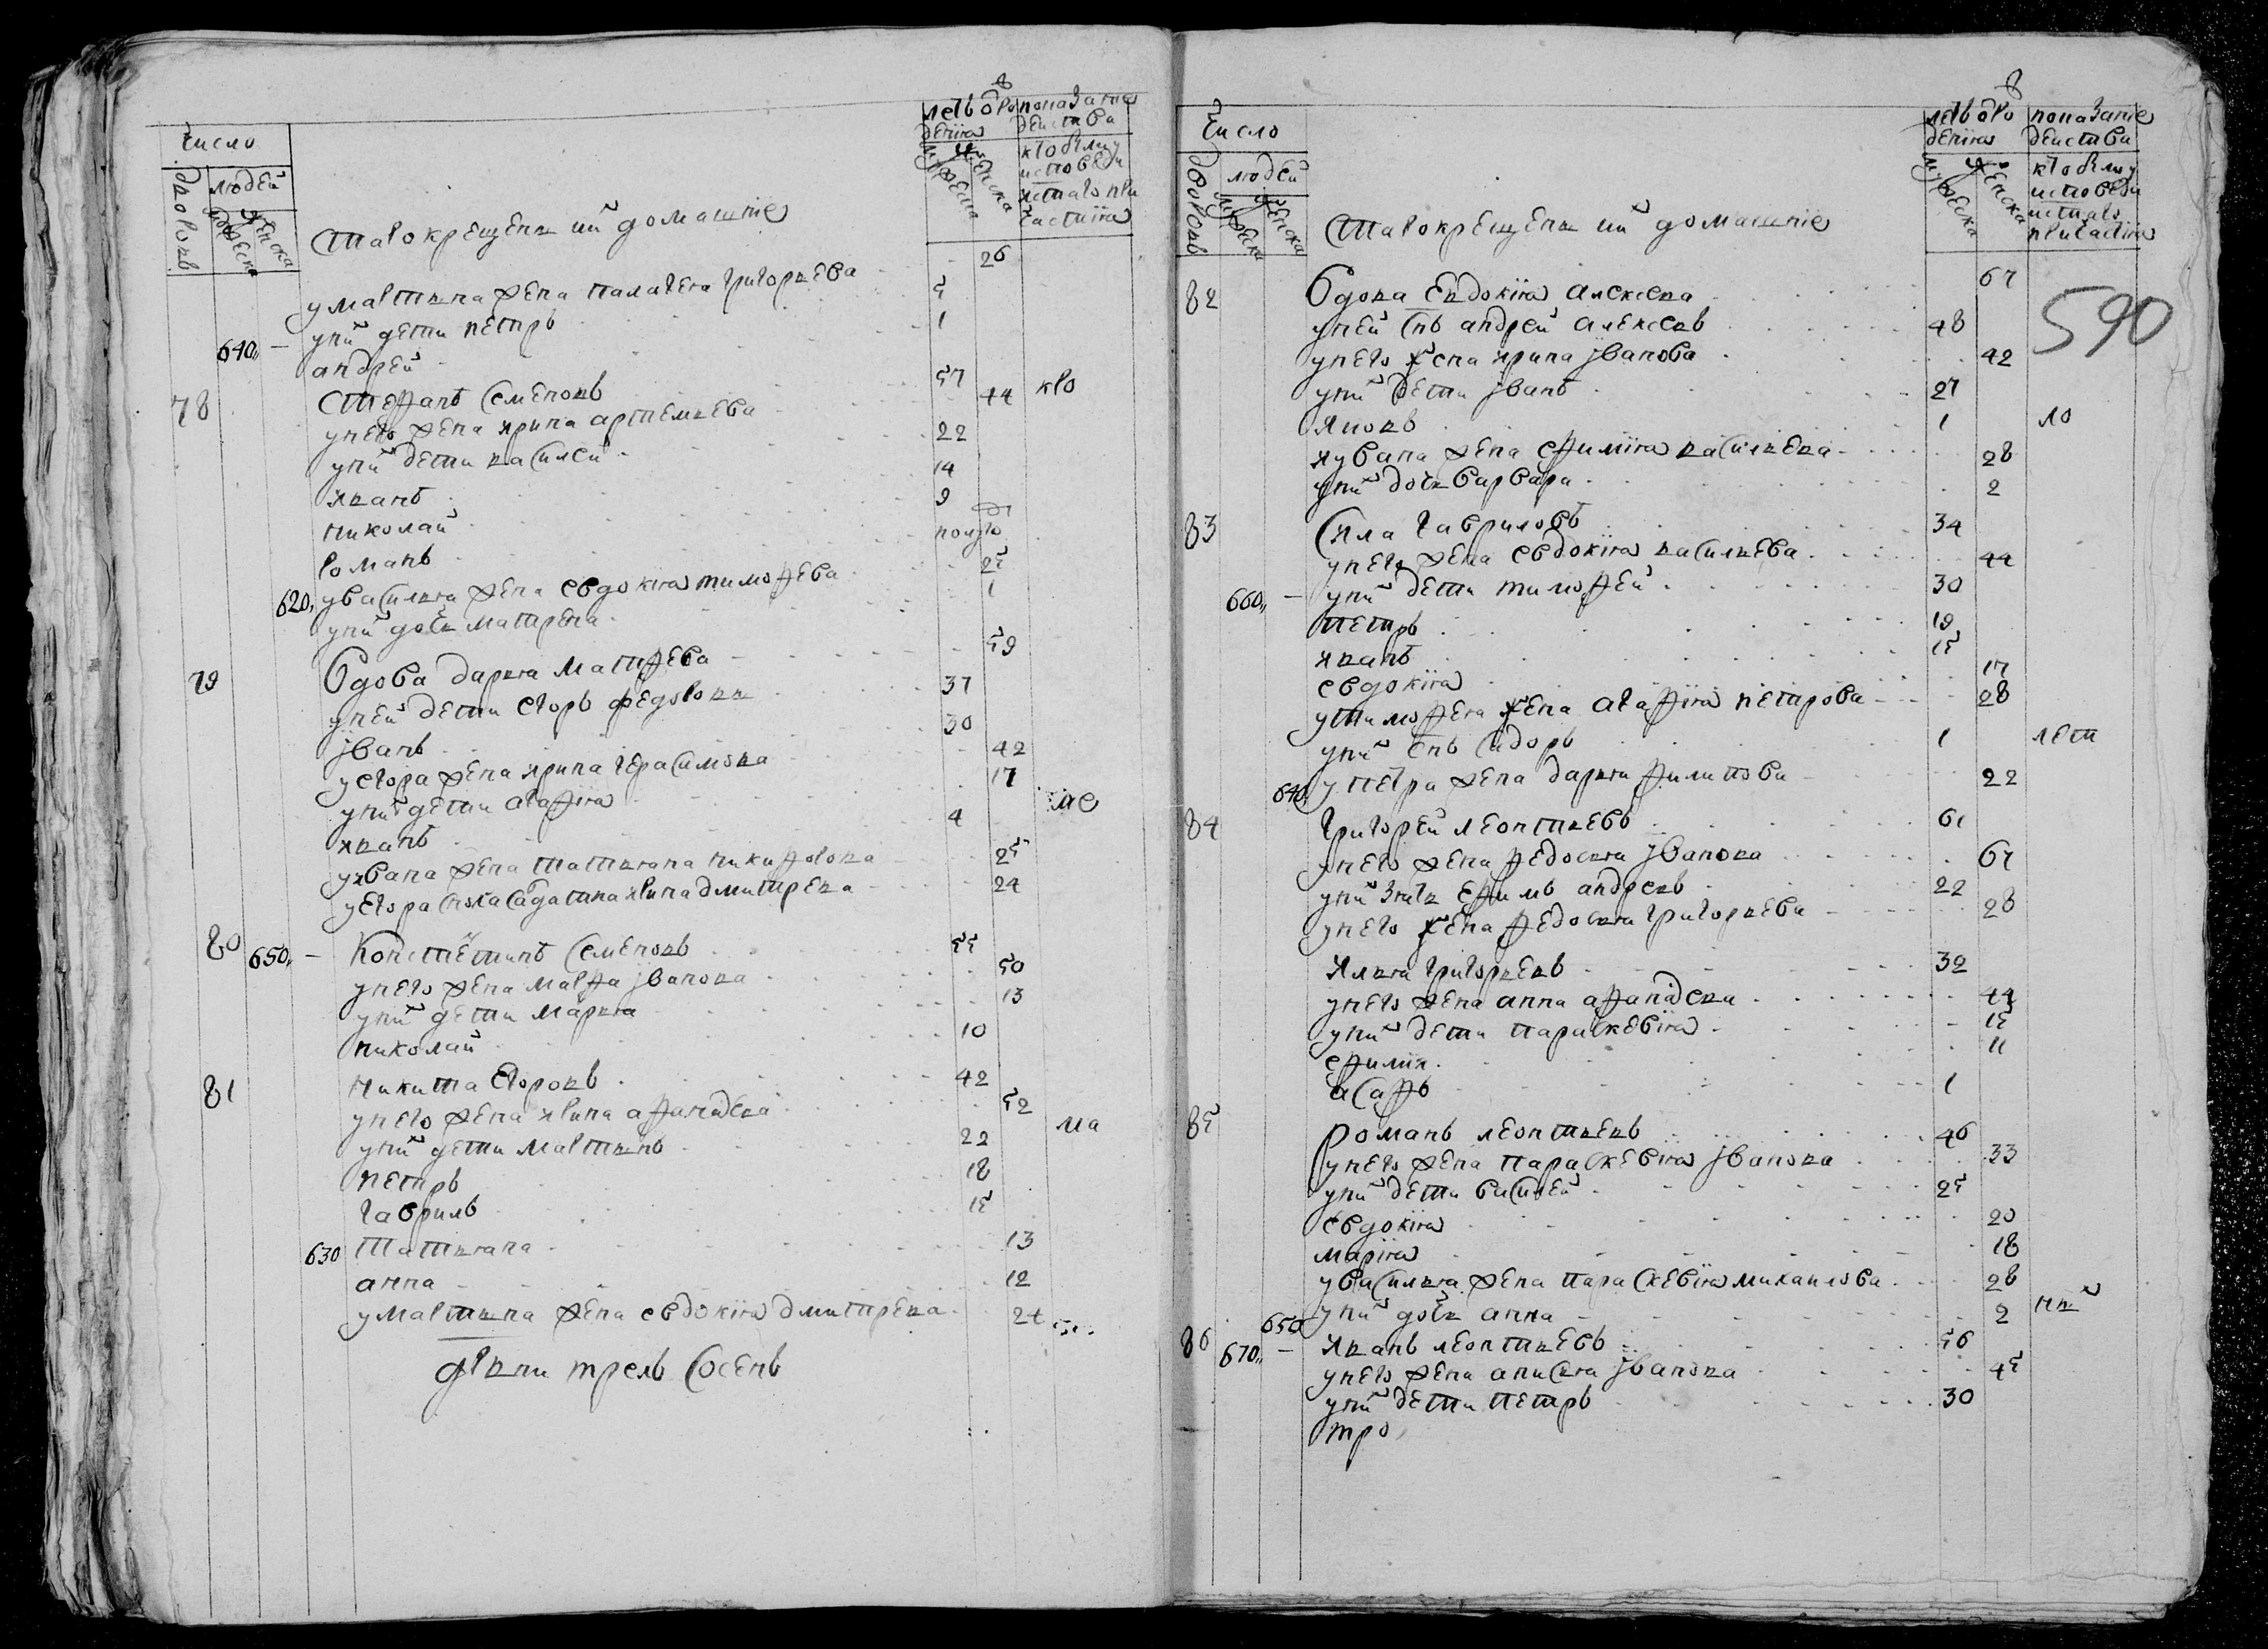 число
дворовъ
людей
мужеска
женска
старокрещены и ихъ домашние
летъ от рож
дения
мужеска
женска
показание
действа
кто был у
исповеди
и с таго при
частия
у мартына жена палагея григорьева 26
у них дети петръ 5
640 андрей 1
78 степанъ семеновъ 57 кто
у него жена ирина артемьева 44
у них дети василей 22
иванъ 14
николай 9
романъ полго
620 у василья жена евдокия тимофеева 25
у них дочь матрена 1
79 вдова дарья матфеева 59
у ней дети егоръ федоровы 37
иванъ 30
у егора жена ирина герасимова 42
у них дети агафия 17
иванъ 4 ле
у ивана жена татьяна никифорова 25
у егора ирина дмитрева 24
80 650 констентинъ семеновъ 55
у него жена марфа иванова 50
у них дети марья 13
николай 10
81 никита егоровъ 42
у него жена ирина афанасева 52
у них дети мартынъ 22 ма
петръ 18
гаврилъ 15
630 татьяна 13
анна 12
у мартына жена евдокия дмитрева 24
число
дворовъ
людей
мужеска
женска
старокрещены и ихъ домашние
летъ от рож
дения
мужеска
женска
показание
действа
кто был у
исповеди
и с таго
причастия
590
82 вдова евдокия алексева 67
у ней снъ андрей алексевъ 48
у него жена ирина иванова 42
у них дети иванъ 27
яковъ 1 ло
у ивана жена ефимия васильева 28
у них дочь варвара 2
83 сила гавриловъ 34
у него жена евдокия васильева 44
660 у них дети тимофей 30
петръ 19
иванъ 15
евдокия 17
у тимофея жена агафия петрова 28
у них снъ сидоръ 1 лет
640 у петра жена дарья филипова 22
84 григорей леонтьевъ 61
у него жена федосья иванова 67
у них зять ефимъ андревъ 22
у него жена федосья григорьева 28
илья григорьевъ 32
у него жена анна афанасева 44
у них дети параскевия 15
ефимия 11
асафъ 1
85 романъ леонтьевъ 46
у него жена параскевия иванова 33
у них дети василей 25
евдокия 20
мария 18
у василья жена параскевия михаилова 28
650 у них дочь анна 2
86 670 иванъ леонтьевъ 56
у него жена анисья иванова 45
у них дети петръ 30
тро